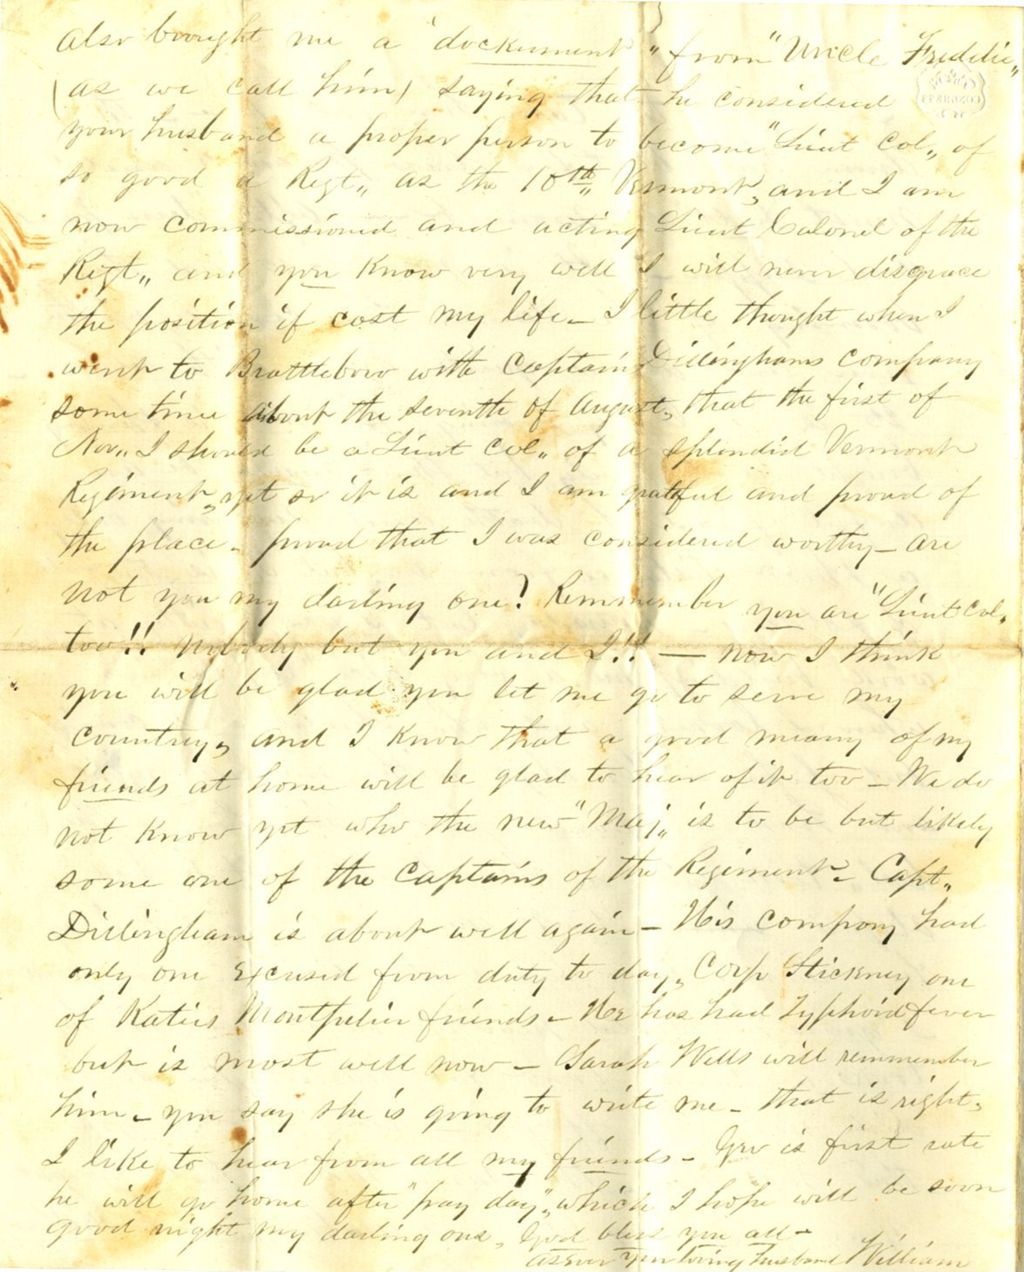 also brought me a "dockument" from "Uncle Freddie"
(as we call him) saying that he considered
your husband a proper person to become "Lieut Col" of
so good a Regt" as the 10th" Vermont, and I am
now commissioned and acting Lieut Colonel of the
Regt" and you know very well I will never disgrace
the position if cost my life - I little thought when I
went to Brattleboro with Captain Dillinghams company
some time about the seventh of August, that the first of
Nov" I should be a Lieut Col" of a splendid Vermont
Regiment, yet so it is and I am grateful and proud of
the place - proud that I was considered worthy - are
not you my darling one? Remmember you are "Lieut Col"
too!! Nobody but you and I!! — now I think
you will be glad you let me go to serve my
country, and I know that a good meany of my
friends at home will be glad to hear of it too - We do
not know yet who the new "Maj" is to be but likely
some one of the Captains of the Regiment - Capt"
Dillingham is about well again - His company had
only one excused from duty to day, Corp Stickney one
of Katies Montpelier friends - He has had Typhoid fever
but is most well now - Sarah Wells will remmember
him - you say she is going to write me - that is right,
I like to hear from all my friends - Geo is first rate
he will go home after "pay day", which I hope will be soon
good night my darling one, God bless you all -
as Ever your loving Husband William